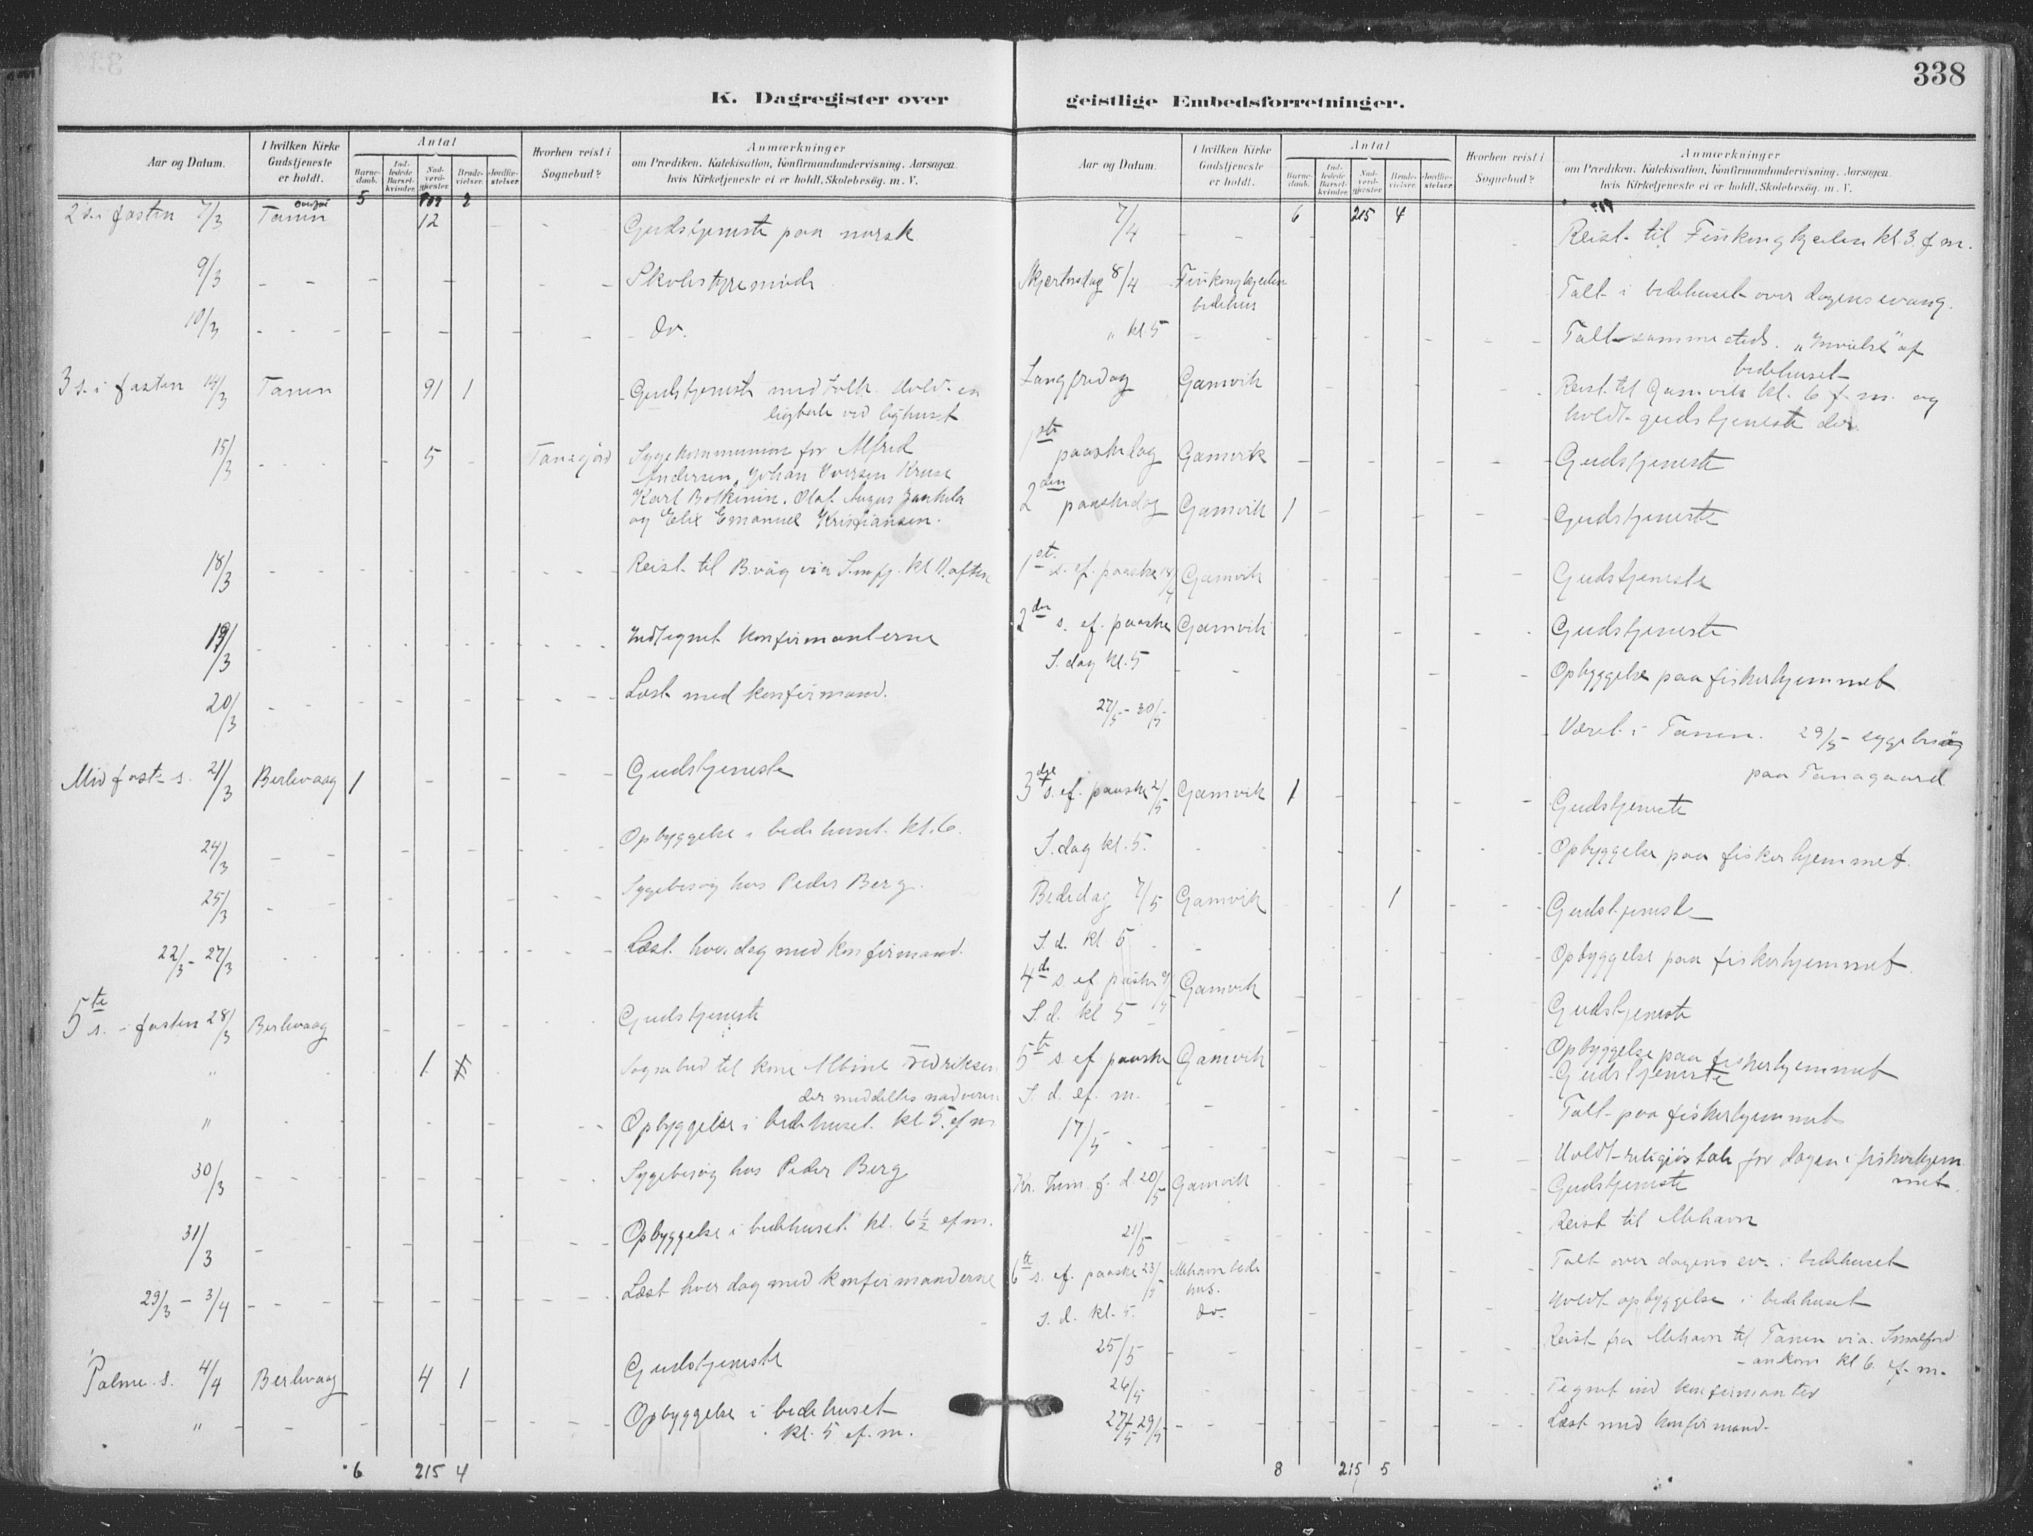 338
K. Dagregister over
geistlige Embedsforretninger.
Aar og Datum.
I hvilken Kirke Gudstjeneste er holdt.
Antal
Barnedaab.
Indledede Barselkvinder.
Nadverdgjester
Brudevielser.
Jordfæstelser.
Hvorhen reist i Sognebud?
Anmærkninger
om Prædiken, Katekisation, Konfirmandundervisning, Aarsagen,
hvis Kirketjeneste ei er holdt, Skolebesøg, m. V.
5 2
2 s. i fasten 7/3 Tanen 12 Gudstjeneste paa norsk
9/3 Skolestyremøde
10/3 do.
3 s. i fasten 14/3 Tanen 91 1 Gudstjeneste med tolk. Holdt en
ligtale ved lighuset
15/3 5 Sygekommunion for Alfred
Andersen, Johan Iversen Kruse
Karl, Olaf
og Emanuel Kristiansen.
18/3 Reist til B.våg via Smfj. kl 11 aften
19/3 Indtegnet konfirmanterne
20/3 Læst med konfirmand.
Midfaste s. 21/3 Berlevaag 1 Gudstjeneste
Opbyggelse i bedehuset kl. 6.
24/3
25/3 Sygebesøg hos Peder Berg.
22/3 - 27/3 Læst hver dag med konfirmand.
5te s. i fasten 28/3 Berlevaag Gudstjeneste
" 1 Sognebud til kone Albine Fredriksen
der meddeltes nadveren
" Opbyggelse i bedehuset kl 5 ef m
30/3 Sygebesøg hos Peder Berg
31/3 Opbyggelse i bedehuset kl. 6½ ef m.
29/3 - 3/4 Læst hver dag med konfirmanderne
Palme s. 4/4 Berlevaag 4 1 Gudstjeneste
" Opbyggelse i bedehuset
kl. 5 ef. m.
6 215 4
Aar og Datum.
I hvilken Kirke Gudstjeneste er holdt.
Antal
Barnedaab.
Indledede Barselkvinder.
Nadverdgjester
Brudevielser.
Jordfæstelser.
Hvorhen reist i Sognebud?
Anmærkninger
om Prædiken, Katekisation, Konfirmandundervisning, Aarsagen,
hvis Kirketjeneste ei er holdt, Skolebesøg, m. V.
6 215 4
7/4 Reist til Finkongkjeilen kl 3 f m.
Skjærtorsdag 8/4 Finkongkjeilen bedehus Talt i bedehuset over dagens evang.
" kl 5 Talt sammesteds. "Invielse" af
bedehuset
Langfredag Gamvik Reist til Gamvik kl. 6 f. m. og
holdt gudstjeneste der
1ste paaskedag Gamvik Gudstjeneste
2den paaskedag Gamvik 1 Gudstjeneste
1st. s. ef. paaske Gamvik Gudstjeneste
2den s. ef. paaske Gamvik Gudstjeneste
S. dag kl. 5 Opbyggelse paa fiskerhjemmet
27/5 - 30/5 Været i Tanen. 29/5 sygebesøg
paa Tanagaard
3dje s. ef. paaske 2/5 Gamvik 1 Gudstjeneste
S. dag kl. 5. Opbyggelse paa fiskerhjemmet.
Bededag 7/5 Gamvik 1 Gudstjeneste
S. d. kl. 5 Opbyggelse paa fiskerhjemmet.
4de s. ef. paaske 9/5 Gamvik Gudstjeneste
S. d. kl 5 Opbyggelse paa fiskerhjemmet
5te s ef paaske Gamvik Gudstjeneste
S. d. ef. m. Talt paa fiskerhjemmet
17/5 Holdt religiøs tale for dagen i fiskerhjem
met
Kr. him. f. d. 20/5 Gamvik Gudstjeneste
21/5 Reist til Mehavn
6te s. ef. paaske 23/5 Mehavn bede hus. Talt over dagens ev. i bedehuset
S. d. kl. 5 do Holdt opbyggelse i bedehuset
25/5 Reist fra Mehavn til Tanen via Smalfjord
- ankom kl 6 ef. m.
26/5 Tegnet ind konfirmanter
27/5 29/5 Læst med konfirmand.
8 215 5